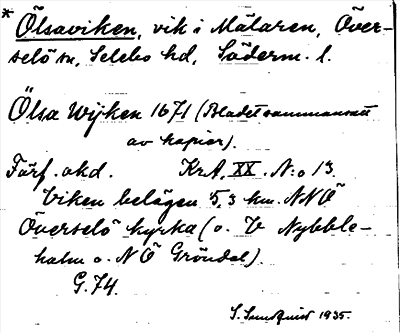 * Ölsaviken, vik i Mälaren, Över-
selö sn, Selebo hd, Söderm. l.
Ölsa Wijken 1671 (Bladet sammansatt
av kopior).
Färf. okd. KrA, XX. N:o 13.
Viken belägen 5,3 km. NNÖ
Överselö kyrka (o. V Nybble-
holm o. NÖ Gröndal).
G. 74.
S. Sundquist 1935.